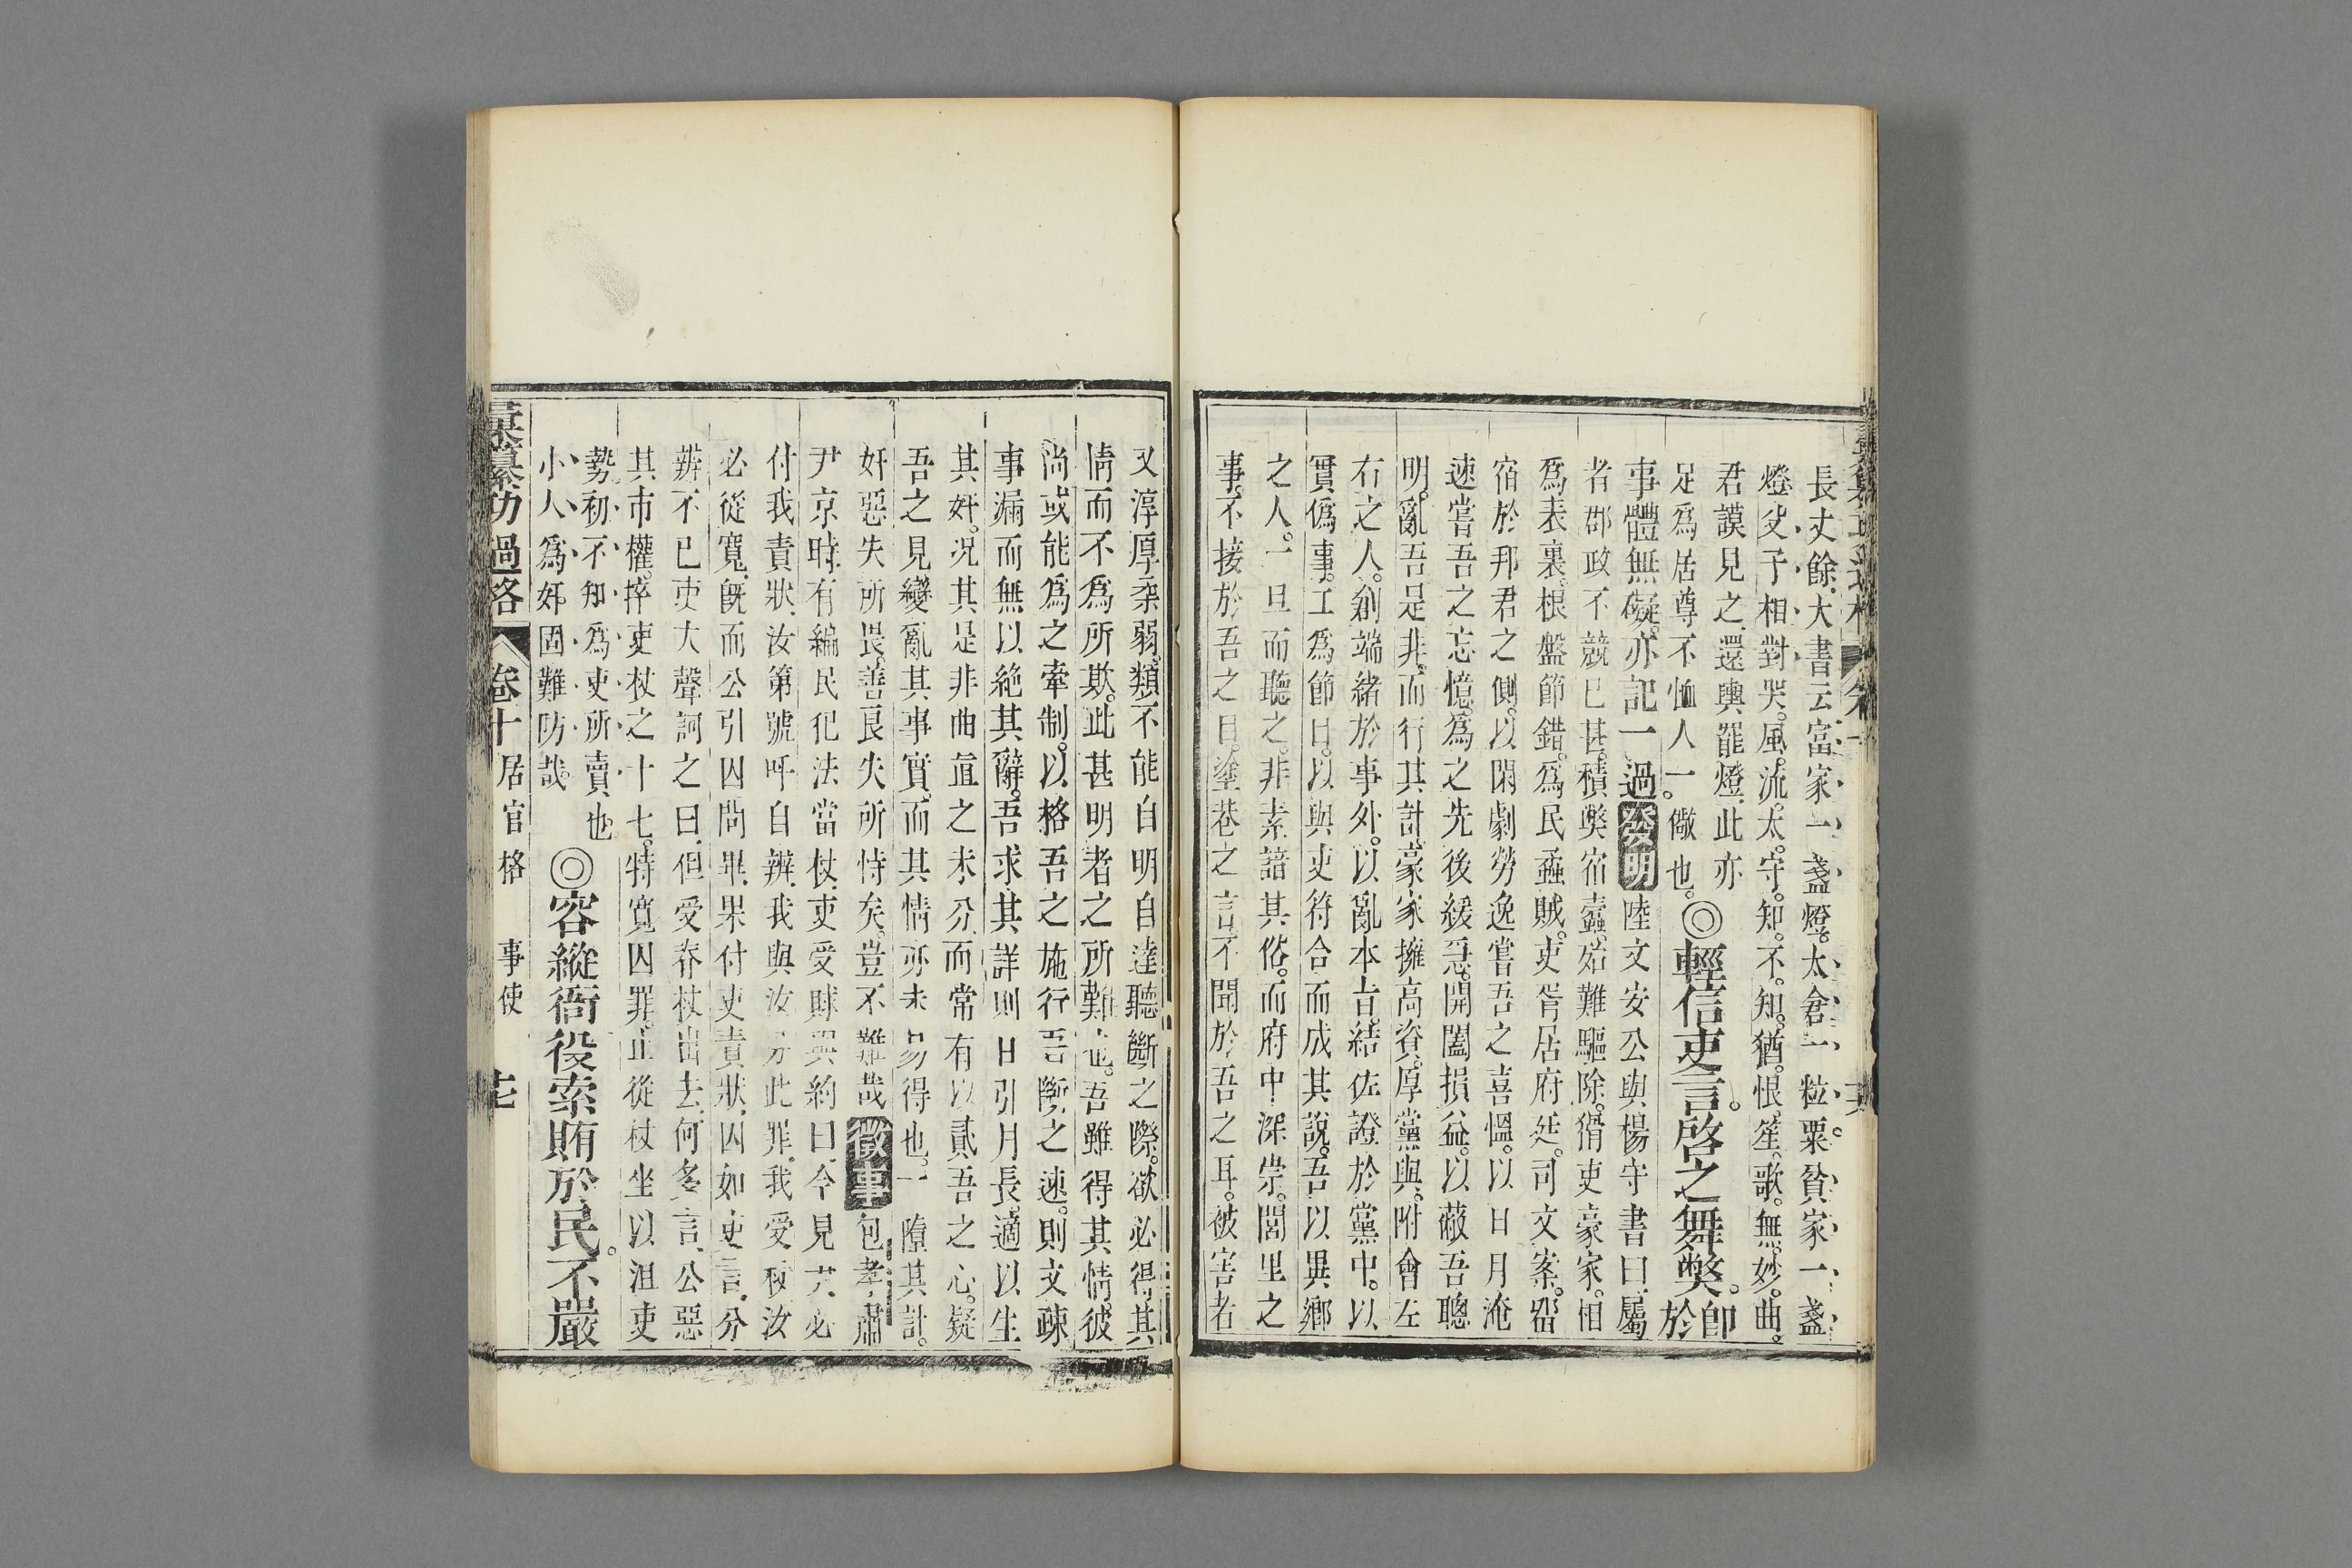 長丈餘大書云富家一盞燈太倉一粒粟貧家一盞
燈父子相對哭風流太守知不知猶恨笙歌無妙曲
君謨見之還輿罷燈此亦
足爲居尊不恤人一儆也◎輕信吏言啓之舞獘卽於
事體無礙亦記一過發明陸文安公與楊守書曰屬
者郡政不競已甚積獘宿蠹殆難驅除猾吏豪家相
爲表裏根盤節錯爲民蟊賊吏胥居府廷司文案宿
宿於邦君之側以閑劇勞逸嘗吾之喜慍以日月淹
速嘗吾之忘憶爲之先後緩急開闔損益以蔽吾聰
明亂吾是非而行其計豪家擁高資厚黨與附會左
右之人創端緒於事外以亂本旨結佐證於黨中以
實僞事工爲節目以與吏符合而成其說吾以異鄉
之人一旦而聽之非素諳其俗而府中深崇閭里之
事不接於吾之目塗巷之言不聞於吾之耳被害者
又淳厚柔弱類不能自明自達聽斷之際欲必得其
情而不爲所欺此甚明者之所難也吾雖得其情彼
尚或能爲之牽制以格吾之施行吾斷之速則文疎
事漏而無以絶其辭吾求其詳則日引月長適以生
其奸况其是非曲直之未分而常有以貳吾之心疑
吾之見變亂其事實而其情亦未易得也一隳其計
奸惡失所畏善良失所恃矣豈不難哉徵事包孝肅
尹京時有編民犯法當杖吏受賕與約曰今見尹必
付我責狀汝第號呼自辨我與汝分此罪我受杖汝
必從寬旣而公引囚問畢果付吏責狀囚如吏言分
辨不已吏大聲訶之曰但受脊杖出去何多言公惡
其市權捽吏杖之十七特寬囚罪止從杖坐以沮吏
勢初不知爲吏所賣也
小人爲奸固難防哉◎容縱衙役索賄於民不嚴
彚纂功過格 卷十居官格 事使 十七